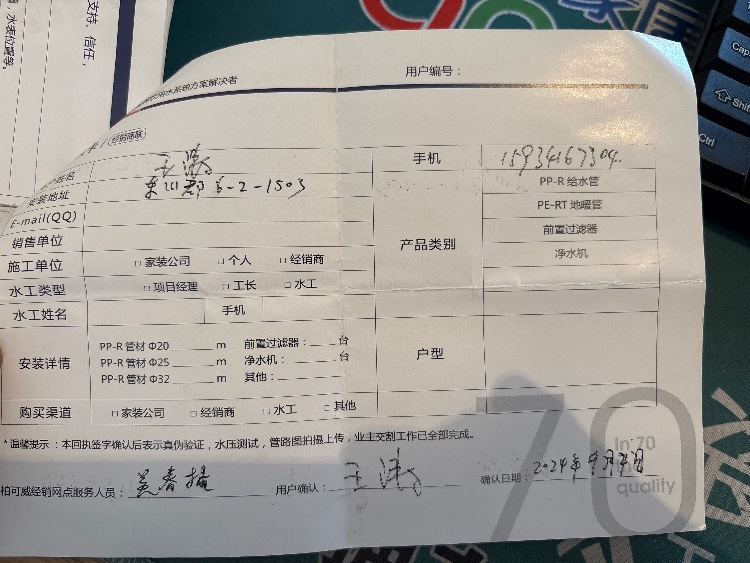 支持、信任,
水表位置等。
家用水系统方案解决者
用户编号：
(经销商联)
姓名 王 手机 15934167304
安装地址 6-2-1503
E-mail(QQ)
销售单位
产品类别
PP-R 给水管
PE-RT 地暖管
前置过滤器
净水机
施工单位 □ 家装公司 □ 个人 □ 经销商
水工类型 □ 项目经理 □ 工长 □ 水工
水工姓名 手机
安装详情
PP-R 管材 Φ20 ____ m 前置过滤器：____ 台
PP-R 管材 Φ25 ____ m 净水机：____ 台
PP-R 管材 Φ32 ____ m 其他：____
户型
购买渠道 □ 家装公司 □ 经销商 □ 水工 □ 其他
*温馨提示：本回执签字确认后表示真伪验证，水压测试，管路图拍摄上传，业主交割工作已全部完成。
柏可威经销网点服务人员： 用户确认：王 确认日期：2024年9月
70
In 70
quality
Cap
Shif
Ctrl